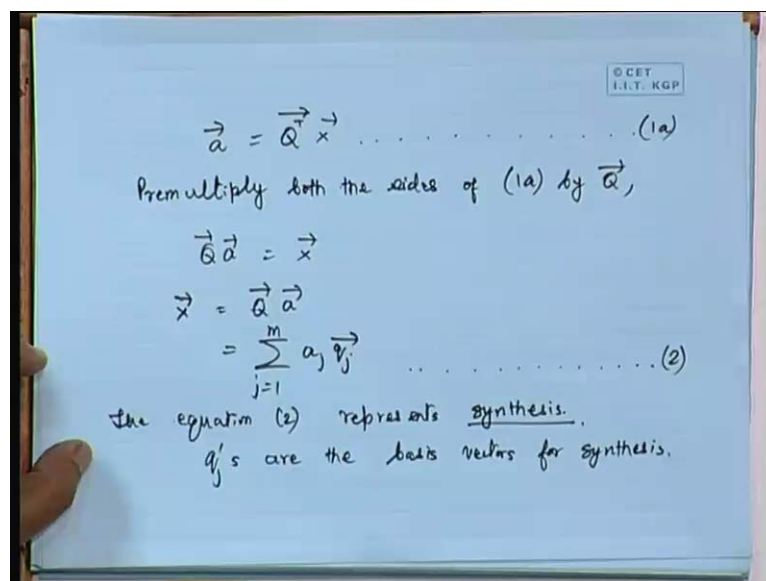 © CET
I.I.T. KGP
$\vec{a} = \vec{Q^T} \vec{x}$ . . . . . . . . . . . . . (1a)
Premultiply both the sides of (1a) by $\vec{Q}$,
$\vec{Q} \vec{a} = \vec{x}$
$\vec{x} = \vec{Q} \vec{a}$
$= \sum_{j=1}^{m} a_j \vec{q_j}$ . . . . . . . . . . . . . (2)
The equation (2) represents synthesis.
$q_j$'s are the basis vectors for synthesis.